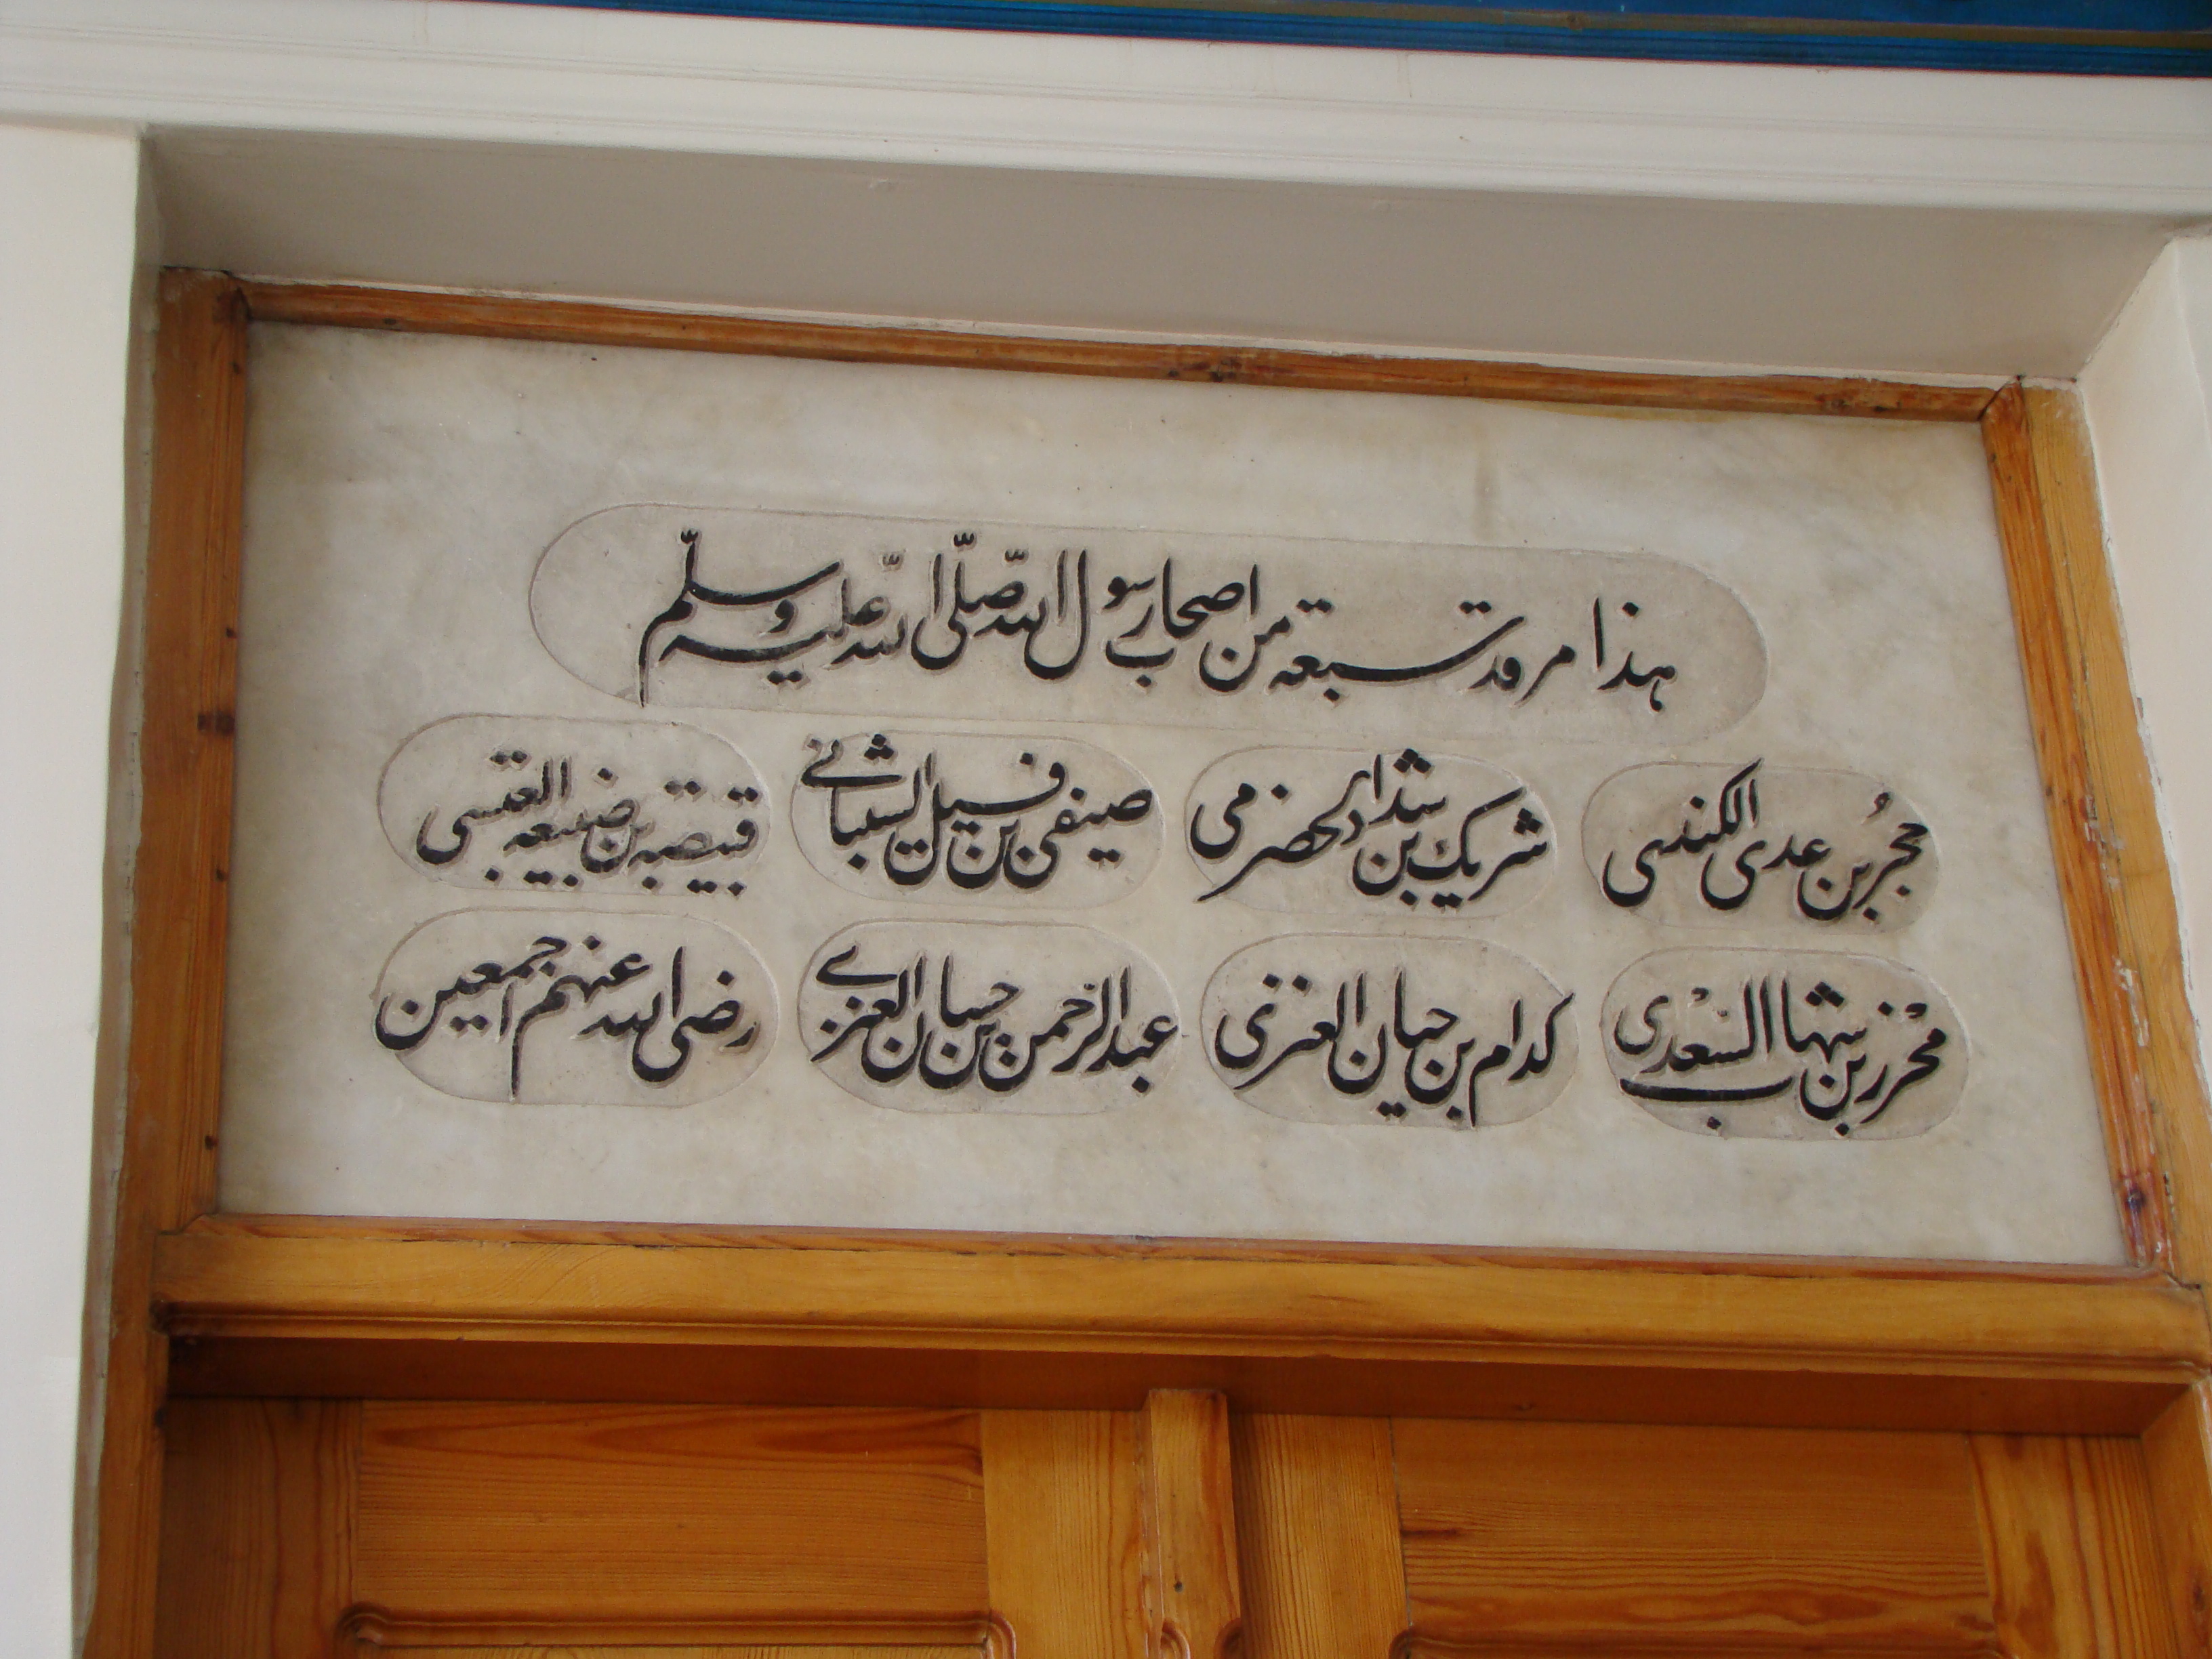 هذا مرقد سبعة من اصحاب رسول الله صلّى الله عليه وسلّم
حجر بن عدى الكندى شريك بن شداد الحضرمى صيفى بن فسيل الشيبانى قبيصة بن ضبيعة العبسى
محرز بن شهاب السعدى كدام بن حيان العنزى عبد الرحمن بن حسان العنزى رضى الله عنهم اجمعين